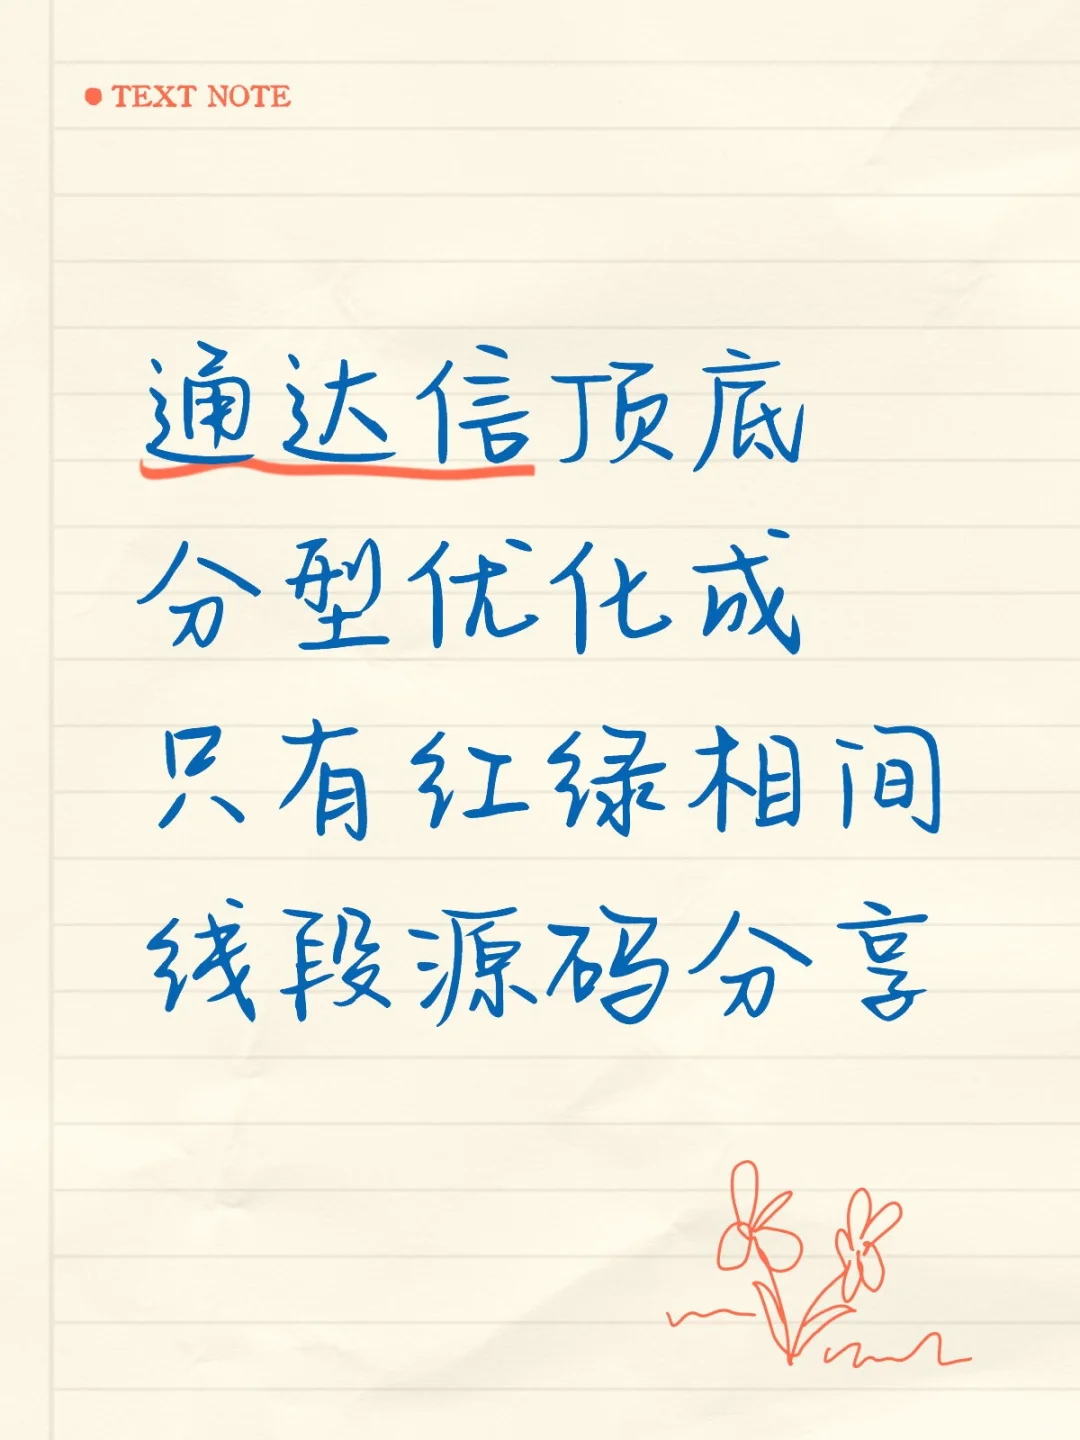 TEXT NOTE
通达信顶底
分型优化成
只有红绿相间
线段源码分享